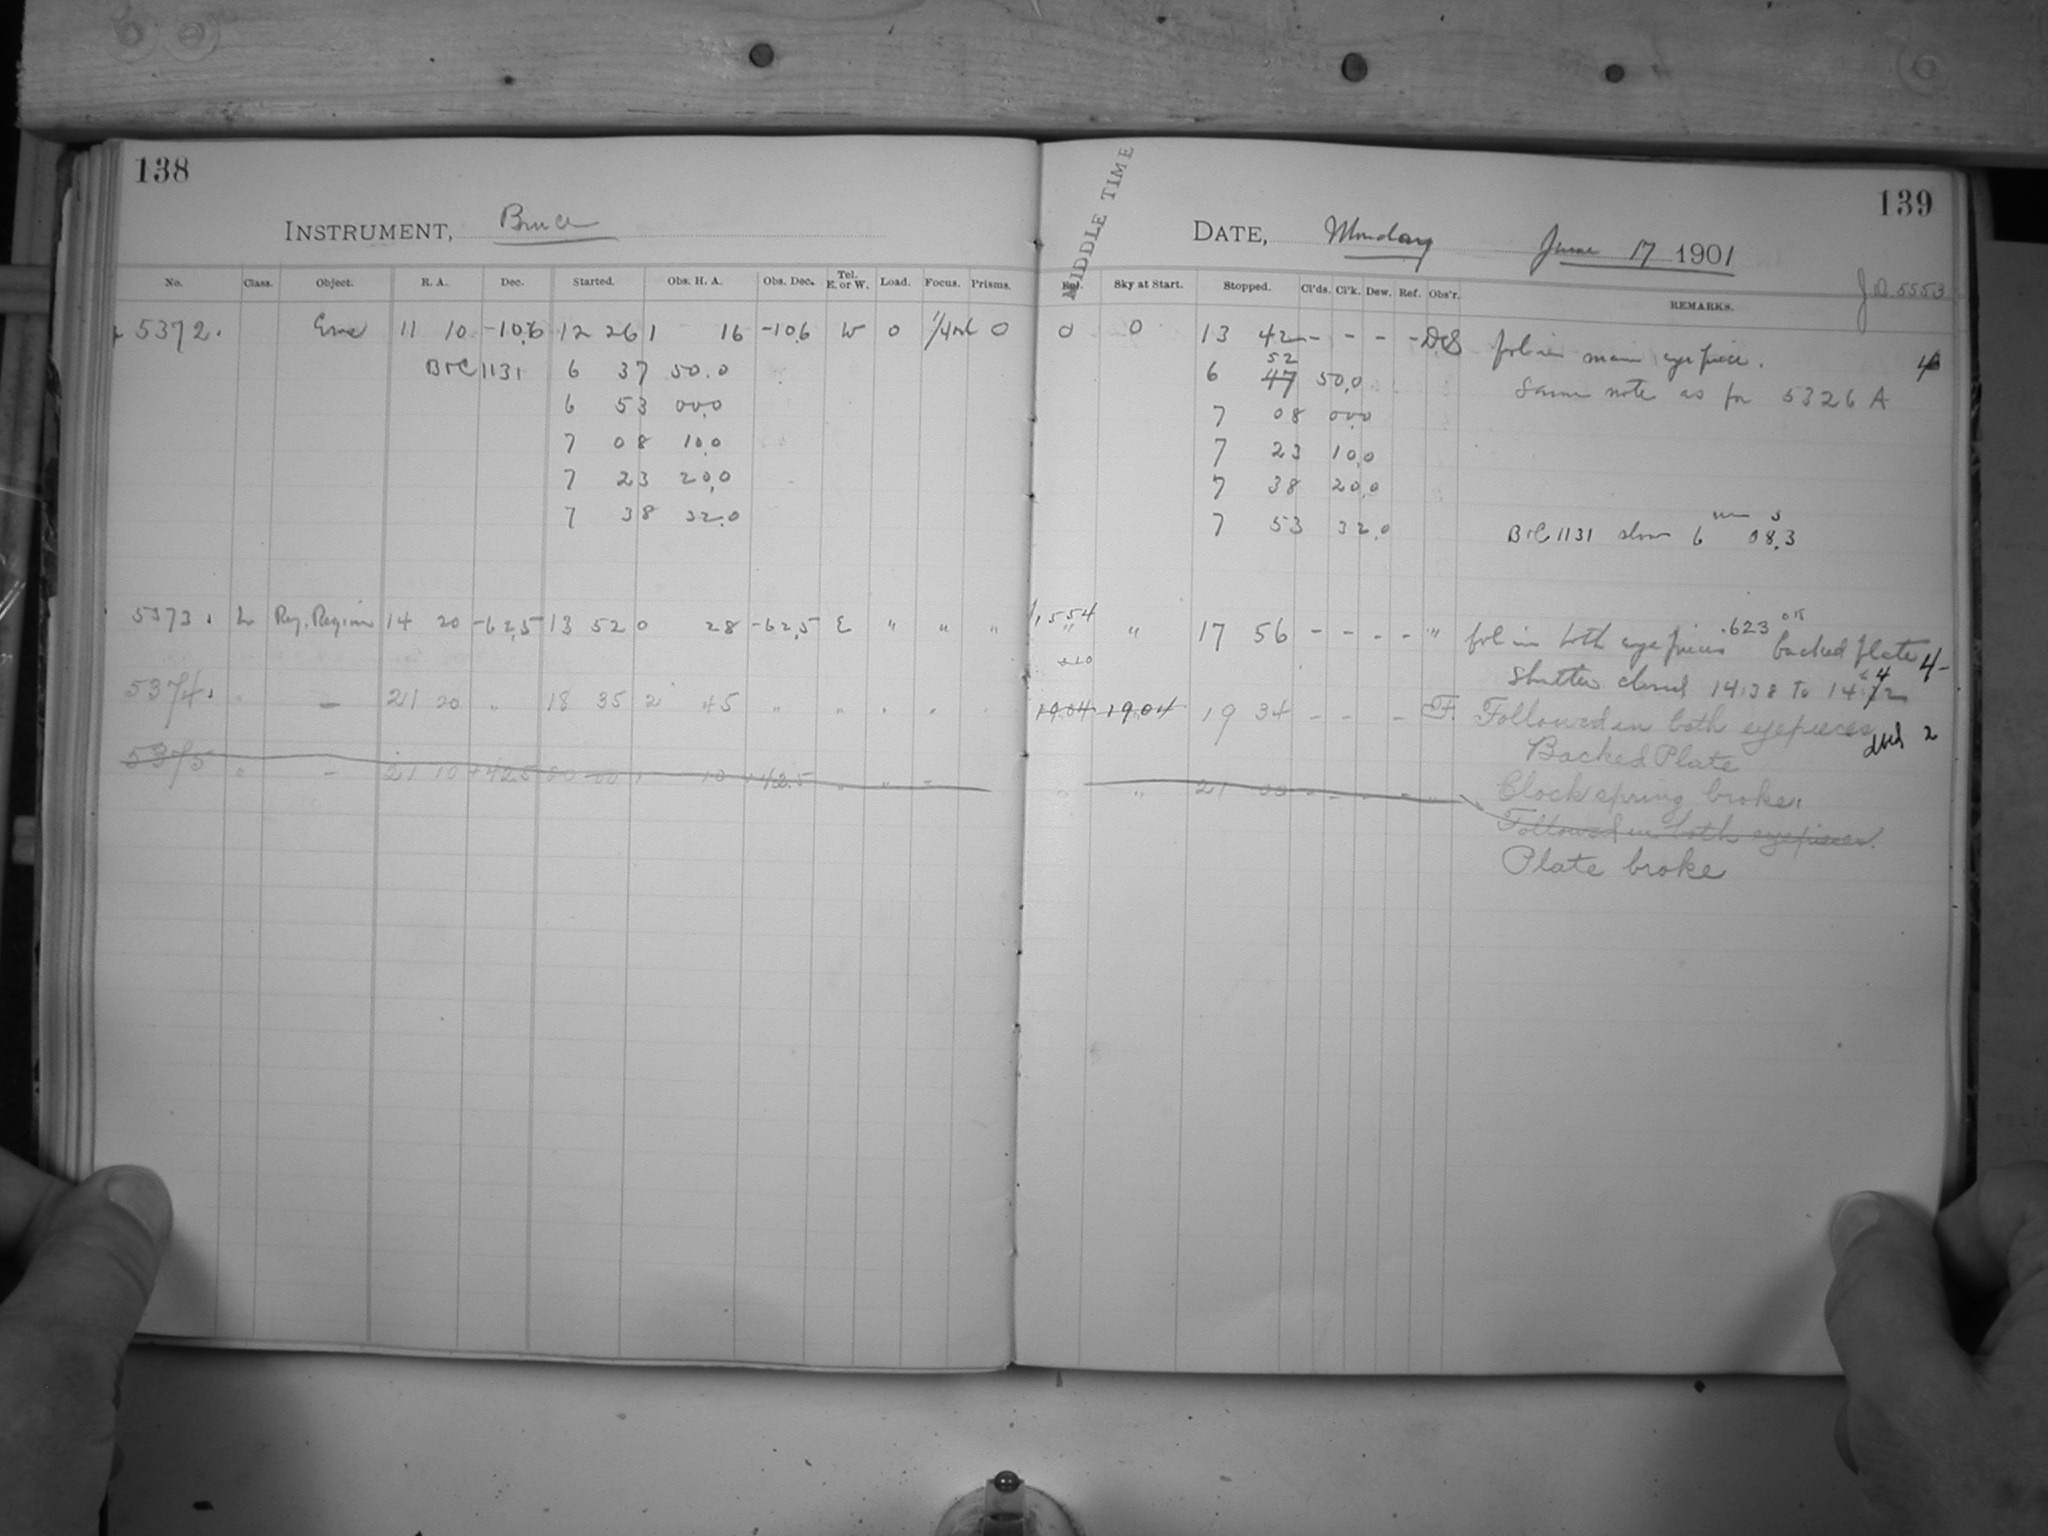 138
INSTRUMENT, Bruce
No. Class. Object. R. A. Dec. Started. Obs. H. A. Obs. Dec. Tel. E. or W. Load. Focus. Prisms.
5372. Eros 11 10 -10.6 12 26 1 16 -10.6 W 0 0
B&C 1131 6 37 50.0
6 53 00.0
7 08 10.0
7 23 20.0
7 38 32.0
5373. L Reg. Region 14 20 -62.5 13 52 0 28 -62.5 E " " "
5374. " 21 20 " 18 35 2 45 " " " "
5375 " - 21 10 +42.5 10 +42.5
139
MIDDLE TIME
DATE, Monday June 17 1901
J.D. 5553
Sky at Start. Stopped. Cl'ds. Cl'k. Dew. Ref. Obs'r. REMARKS.
0 0 13 42 - - - - fol in main eyepiece. 4
52
6 47 50.0 Same note as for 5326 A
7 08 00.0
7 23 10.0
7 38 20.0
7 53 32.0 B&C 1131 slow 6 m 08.3 s
1,554 " " 17 56 - - - - " fol in both eyepieces .623 backed plate 4-
Shutter closed 14:38 to
1904 1904 19 34 - - - F. Followed in both eyepieces 2
Backed Plate
21 Clock spring broke.
Followed in both eyepieces.
Plate broke